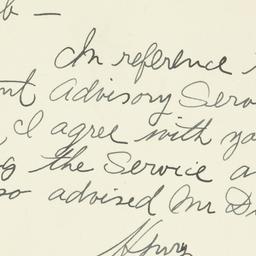 b —
In reference
nt Advisory Serv
, I agree with yo
g the Service a
so advised Mr D